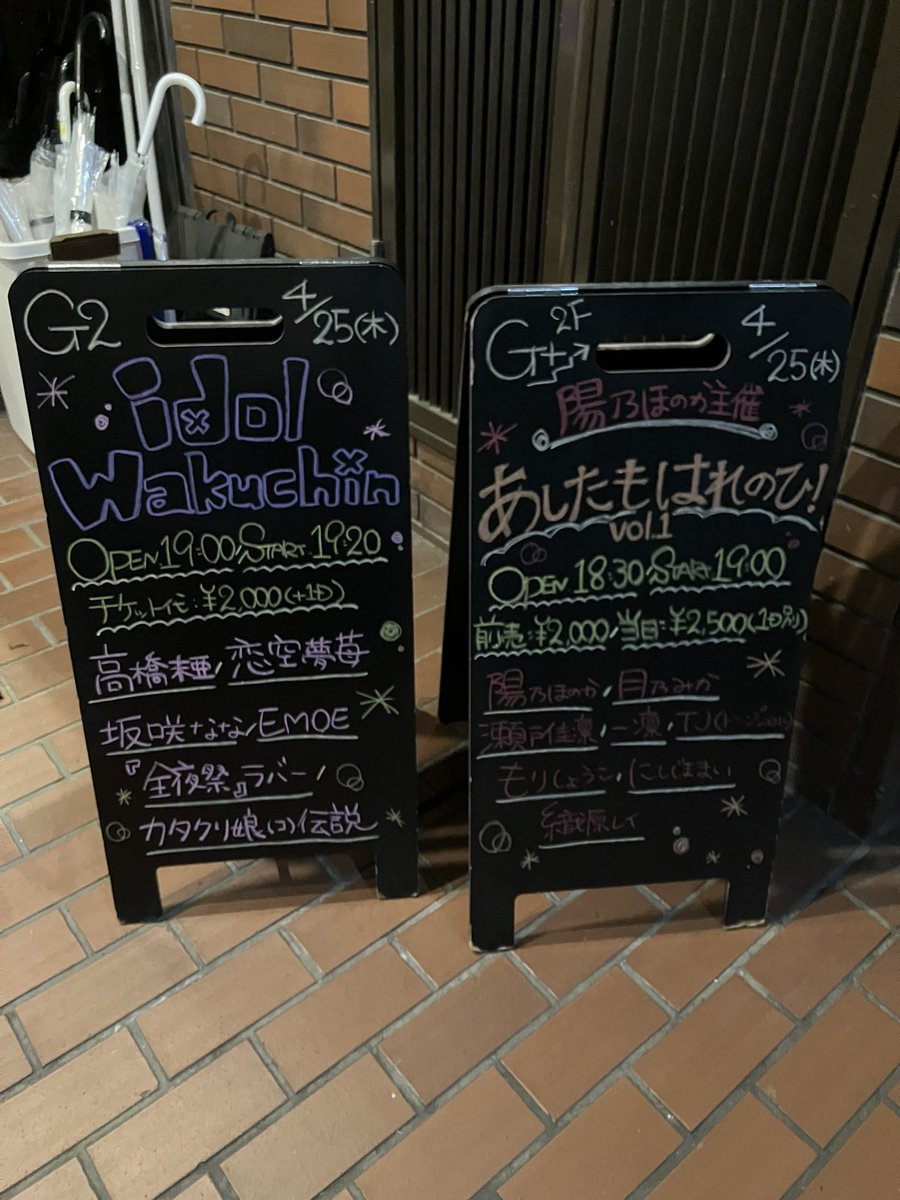 G2 4/25(木)
idol
Wakuchin
OPEN 19:00/START 19:20
チケット代:¥2,000(+1D)
高橋 恋空夢苺
坂咲ななな/EMOE
『全夜祭』ラバー/
カタクリ娘(コ)伝説
G+ 2F 4/25(木)
陽乃ほのか主催
あしたもはれのひ!
vol.1
OPEN 18:30/START 19:00
前売:¥2,000/当日:¥2,500(1Dアリ)
陽乃ほのか/月乃みか
瀬戸佳凛/一凛/TJ
もりしょうこ/にしじままい
織原レイ